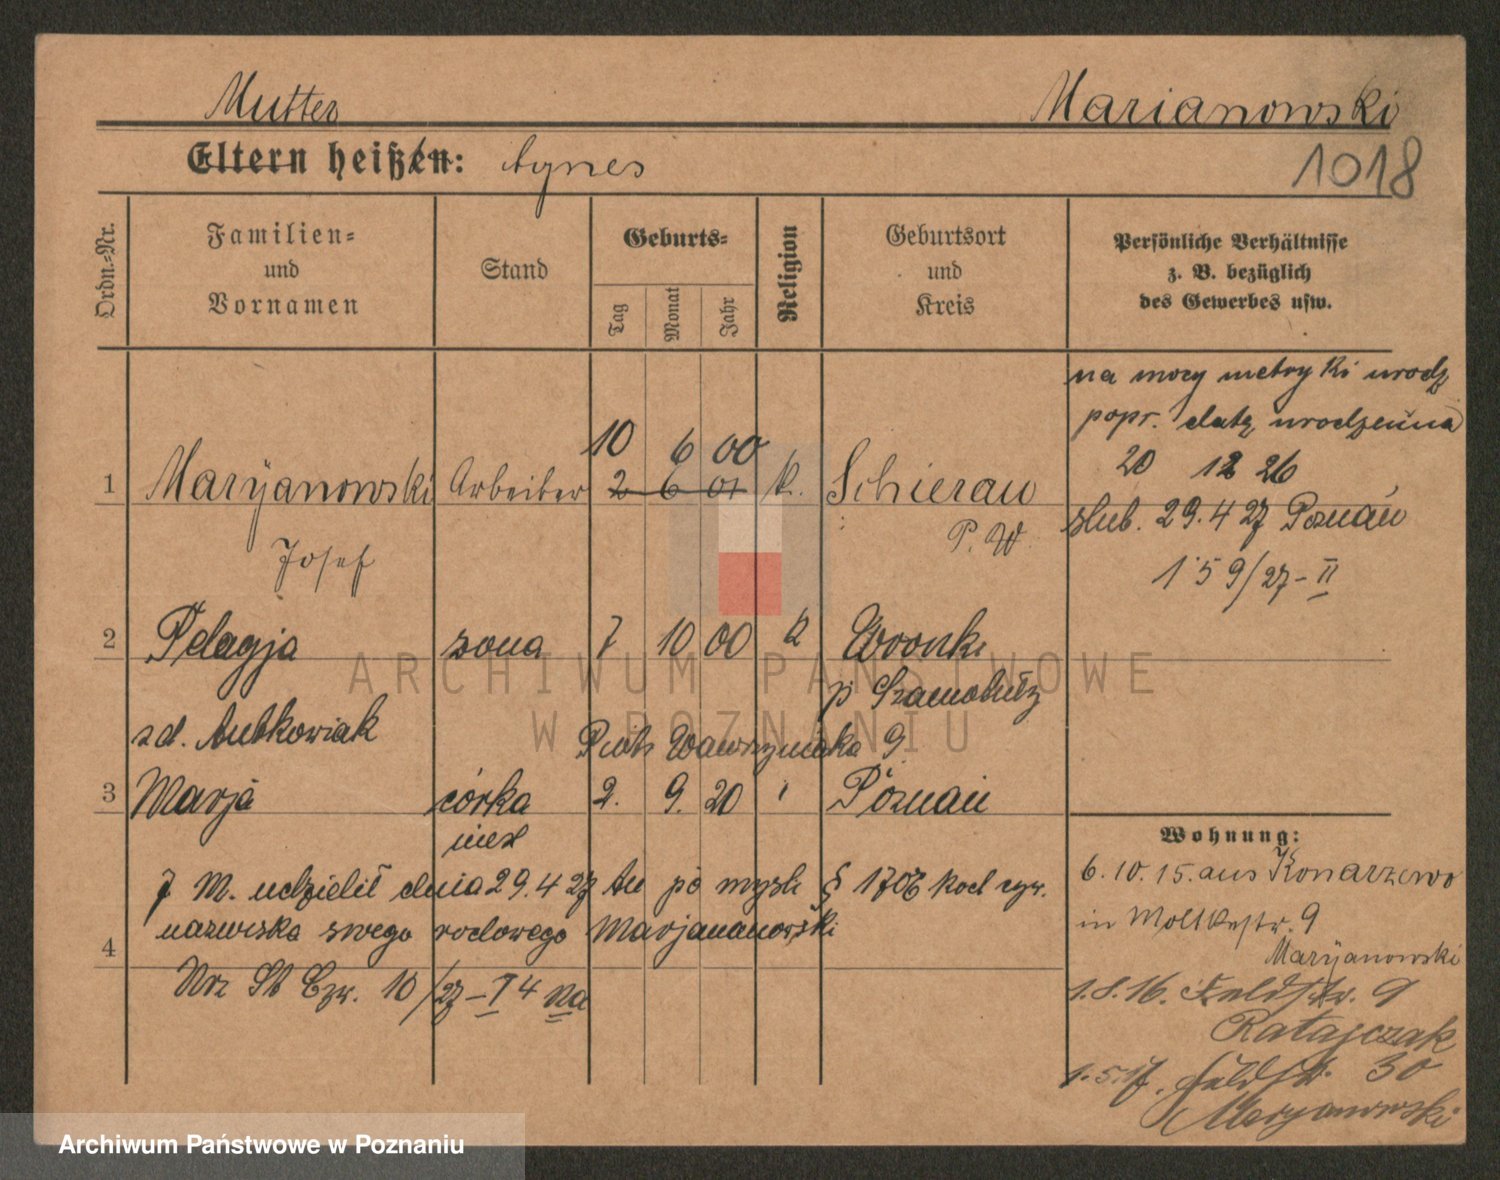 Mutter Marianowski
Eltern heißen: Agnes 1018
Ordn.-Nr.
Familien-
und
Vornamen
Stand
Geburts-
Tag Monat Jahr
Religion
Geburtsort
und
Kreis
Persönliche Verhältnisse
z. B. bezüglich
des Gewerbes usw.
na mocy metryki urodz
popr. datę urodzenia
20 12 26
10 6 00
1 Maryanowski Arbeiter 2 6 01 k. Schierau
P. W.
Josef
ślub. 29.4 27 Poznań
159/27-II
2 Pelagja żona 7 10 00 k Wronki
p Szamotuły
zd. Antkowiak
Piotr Wawrzyniaka 9
3 Marja córka 2. 9. 20 Poznań
nieśl
J M. udzielił dnia 29.4 27 po myśli § 1706 kod cyw.
nazwiska swego rodowego Marjanowski
4
10/27-I 4
Wohnung:
6.10.15. aus Konarzewo
in Moltkestr. 9
Maryanowski
1.8.16. Feldstr. 9
Ratajczak
1.5.17. Feldstr. 30
Maryanowski
ARCHIWUM PAŃSTWOWE
W POZNANIU
Archiwum Państwowe w Poznaniu